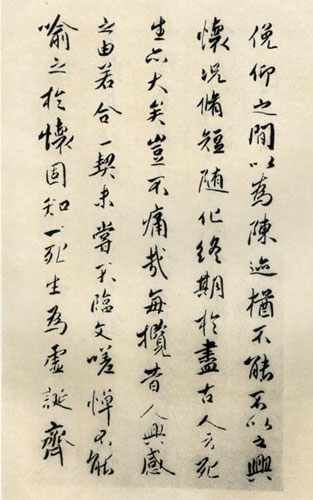 俛仰之間以爲陳迹猶不能不以之興
懷況脩短随化終期於盡古人云死
生亦大矣豈不痛哉每攬昔人興感
之由若合一契未嘗不臨文嗟悼不能
喻之於懷固知一死生爲虛誕齊